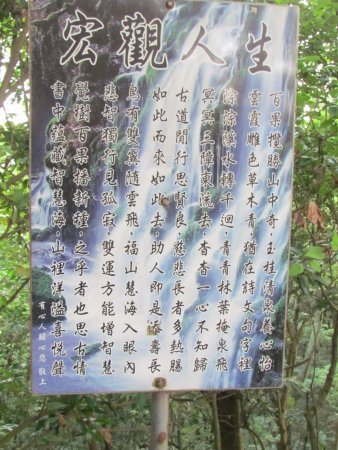 生人觀宏
百果攬勝山中奇玉桂清泉養心怡
雲霞雕色草木青猶在詩文句字裡
淙淙溪水轉千迴青青林葉掩泉飛
冥冥三障東流去杳杳一心不知歸
古道閒行思賢良慈悲長者多熱腸
如此而來如此去助人即是添壽長
鳥有雙翼隨雲飛福山慧海入眼內
悲智獨行見孤寂雙運方能增智慧
覺樹百果播耕種之乎者也思古情
書中蘊藏智慧海山裡洋溢喜悅聲
有心人關心您敬上